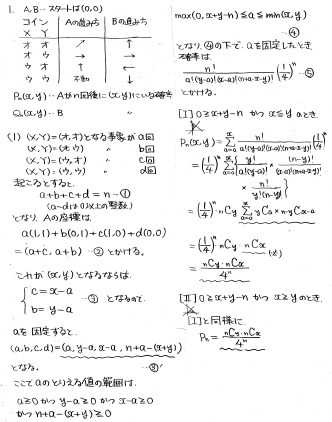 1. A, B… スタートは(0,0)
コイン Aの進み方 Bの進み方
X Y
オ オ ↗ ↓
オ ウ ↑ →
ウ オ → ←
ウ ウ 不動 ↓
Pn(x,y)… Aがn回後に(x,y)にいる確率
Qn(x,y)… B 〃
(1) (X,Y)=(オ,オ)となる事象が a回
(X,Y)=(オ,ウ) 〃 b回
(X,Y)=(ウ,オ) 〃 c回
(X,Y)=(ウ,ウ) 〃 d回
起こるとすると、
a+b+c+d=n …①
(a~dは0以上の整数)
となり Aの座標は
a(1,1)+b(0,1)+c(1,0)+d(0,0)
=(a+c, a+b) …② とかける。
これが(x,y)となるならば
{ c=x-a
b=y-a …③ となるので
aを固定すると
(a,b,c,d)=(a, y-a, x-a, n+a-(x+y))
となる。 …③'
ここでaのとりえる値の範囲は、
a≥0 かつ y-a≥0 かつ x-a≥0
かつ n+a-(x+y)≥0
max(0, x+y-n)≤a≤min(x,y)
…④
となり ④の下で、aを固定したとき
確率は
n!/(a!(y-a)!(x-a)!(n+a-x-y)!) (1/4)^n …⑤
とかける。
[I] 0≥x+y-n かつ x≤y のとき
Pn(x,y)=Σ[a=0, x] n!/(a!(y-a)!(x-a)!(n+a-x-y)!) (1/4)^n
=(1/4)^n Σ[a=0, x] { y!/(a!(y-a)!) × (n-y)!/((x-a)!(n+a-x-y)!)
× n!/(y!(n-y)!) }
=(1/4)^n · nCy Σ[a=0, x] yCa × n-yCx-a
=(1/4)^n · nCy · nCx (※)
= nCy · nCx / 4^n
[II] 0≥x+y-n かつ x≥y のとき
[I]と同様に
Pn = nCy · nCx / 4^n